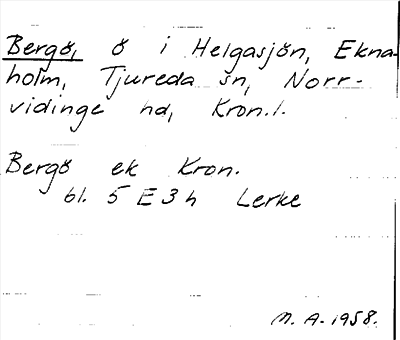 Bergö, ö i Helgasjön, Ekna-
holm, Tjureda sn, Norr-
vidinge hd, Kron.l.
Bergö ek Kron.
bl. 5 E 3 h Lerke
M. A. 1958.